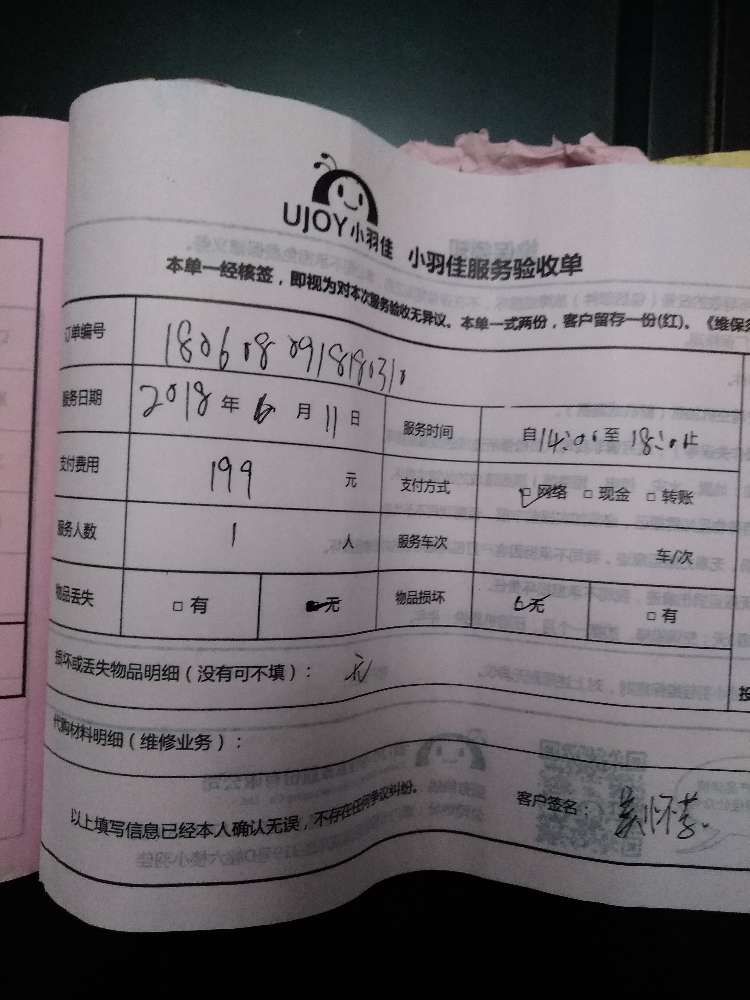 UJOY小羽佳 小羽佳服务验收单
本单一经核签，即视为对本次服务验收无异议。本单一式两份，客户留存一份(红)。《维保
订单编号 180608091818310
服务日期 2018 年 6 月 11 日 服务时间 自14:00至 18:00止
支付费用 199 元 支付方式 ☑ 网络 □ 现金 □ 转账
服务人数 1 人 服务车次 车/次
物品丢失 □ 有 ☑无 物品损坏 ☑无 □ 有
损坏或丢失物品明细（没有可不填）： 无
代购材料明细（维修业务）：
以上填写信息已经本人确认无误，不存在任何争议纠纷。 客户签名：